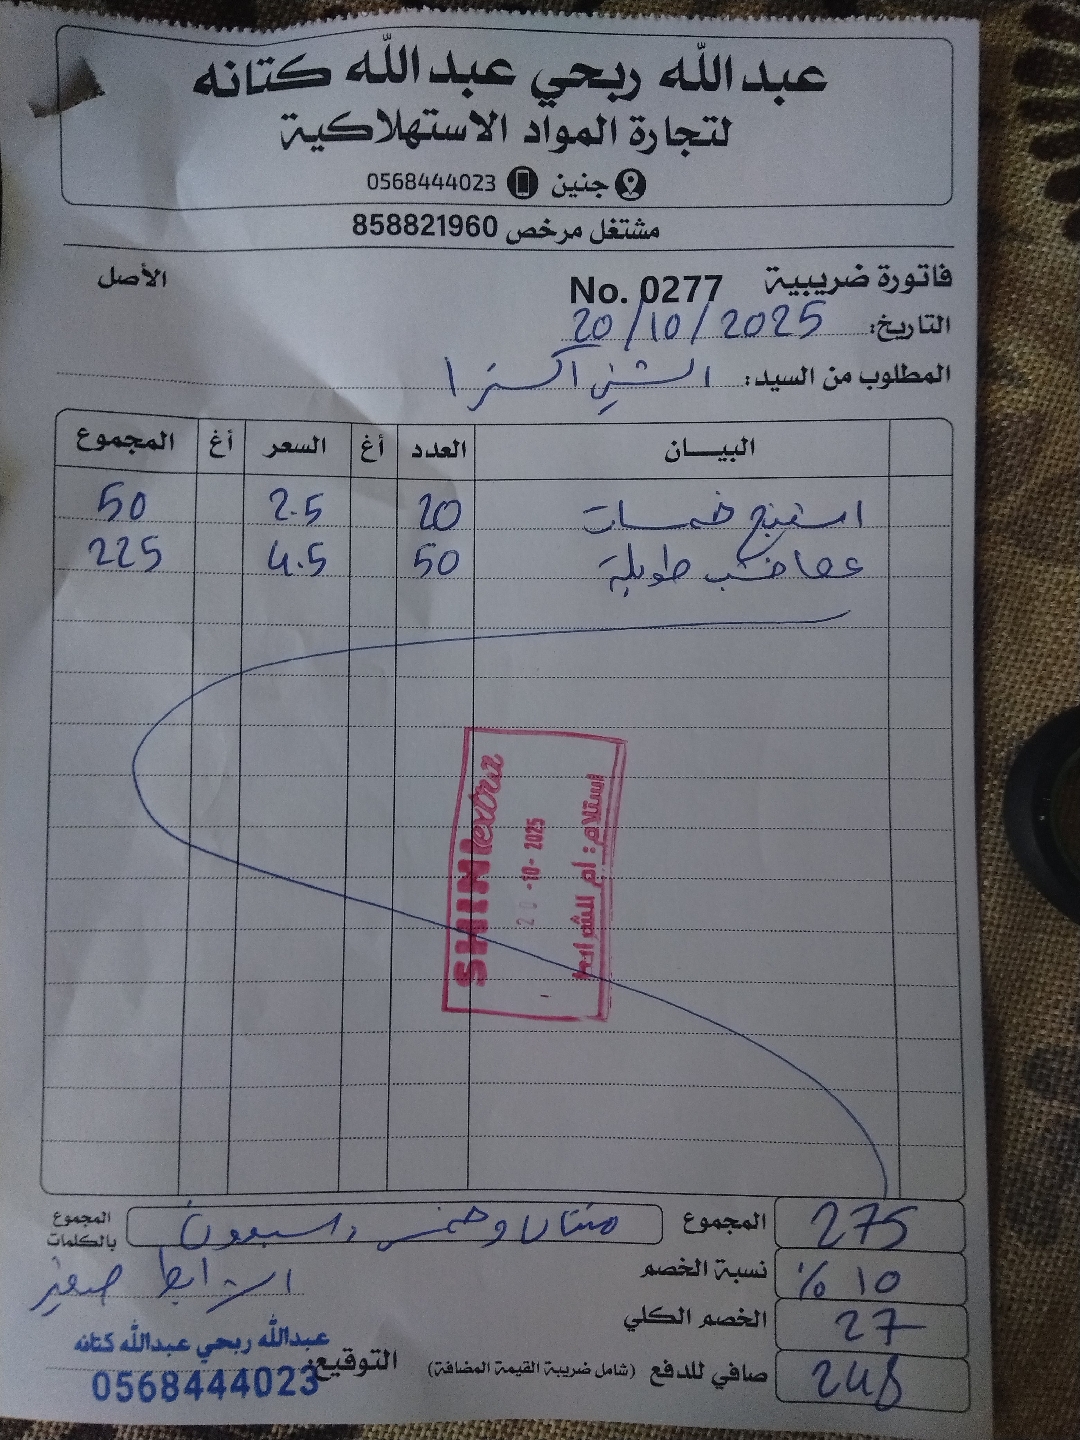 عبدالله ربحي عبدالله كتانه
لتجارة المواد الاستهلاكية
جنين 0568444023
مشتغل مرخص 858821960
فاتورة ضريبية No. 0277 الأصل
التاريخ: 20/10/2025
المطلوب من السيد: الشني اكسترا
البيـــان العدد أغ السعر أغ المجموع
اسفنج خمسات 20 2.5 50
عصا خشب طويلة 50 4.5 225
SHINI extra
20-10-2025
استلام: ام الشرايط
275 المجموع مئتان وخمس وسبعون المجموع بالكلمات
10 % نسبة الخصم
27 الخصم الكلي
248 صافي للدفع (شامل ضريبة القيمة المضافة)
التوقيع:
عبدالله ربحي عبدالله كتانه
0568444023